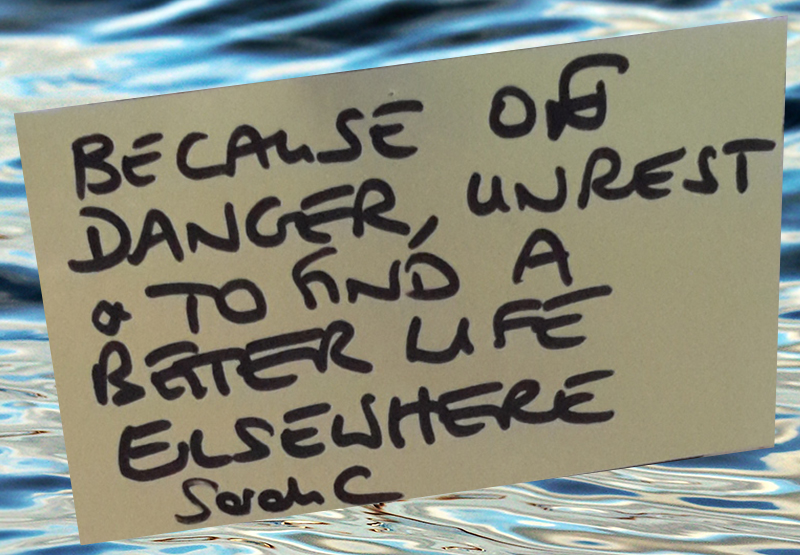 BECAUSE OF
DANGER, UNREST
& TO FIND A
BETTER LIFE
ELSEWHERE
Sarah C